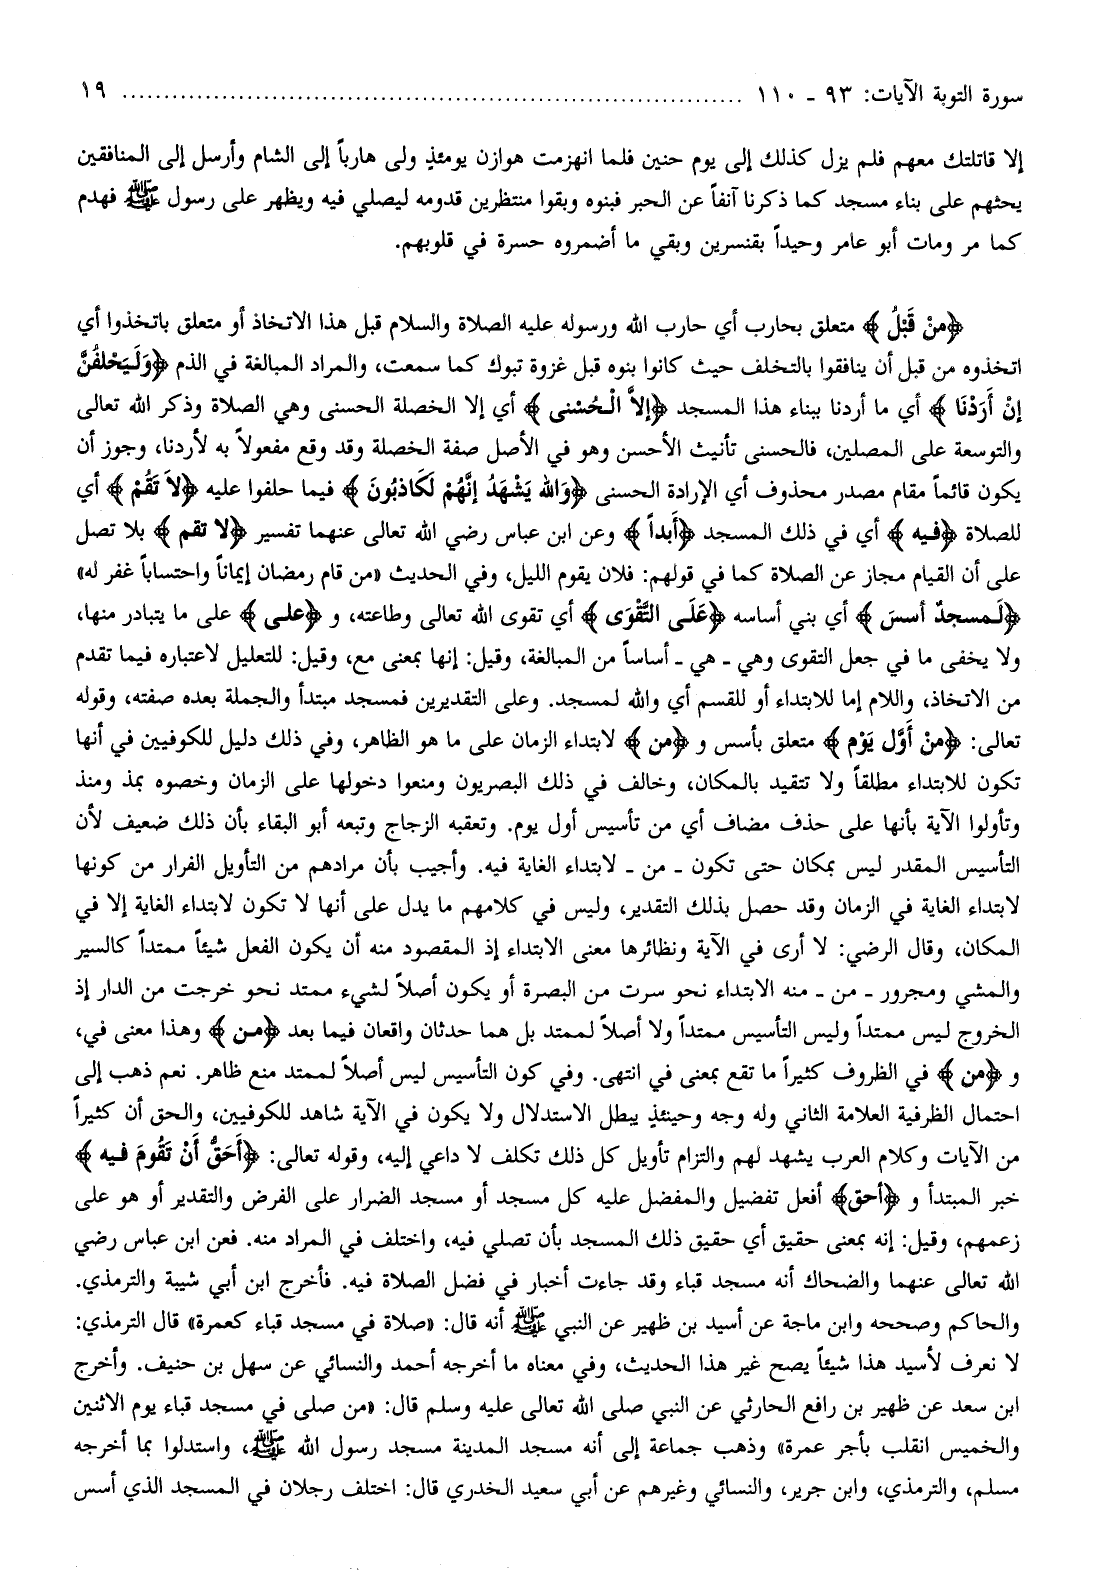 سورة التوبة الآيات: ٩٣ ـ ١١٠ ........................................................................ ١٩
إلا قاتلتك معهم فلم يزل كذلك إلى يوم حنين فلما انهزمت هوازن يومئذٍ ولى هارباً إلى الشام وأرسل إلى المنافقين
يحثهم على بناء مسجد كما ذكرنا آنفاً عن الحبر فبنوه وبقوا منتظرين قدومه ليصلي فيه ويظهر على رسول ﷺ فهدم
كما مر ومات أبو عامر وحيداً بقنسرين وبقي ما أضمروه حسرة في قلوبهم.
﴿مِنْ قَبْلُ﴾ متعلق بحارب أي حارب الله ورسوله عليه الصلاة والسلام قبل هذا الاتخاذ أو متعلق باتخذوا أي
اتخذوه من قبل أن ينافقوا بالتخلف حيث كانوا بنوه قبل غزوة تبوك كما سمعت، والمراد المبالغة في الذم ﴿وَلَيَحْلفُنَّ
إنْ أَرَدْنَا﴾ أي ما أردنا ببناء هذا المسجد ﴿إلاَّ الْحُسْنى﴾ أي إلا الخصلة الحسنى وهي الصلاة وذكر الله تعالى
والتوسعة على المصلين، فالحسنى تأنيث الأحسن وهو في الأصل صفة الخصلة وقد وقع مفعولاً به لأردنا، وجوز أن
يكون قائماً مقام مصدر محذوف أي الإرادة الحسنى ﴿وَالله يَشْهَدُ إنَّهُمْ لَكَاذبُونَ﴾ فيما حلفوا عليه ﴿لاَ تَقُمْ﴾ أي
للصلاة ﴿فيه﴾ أي في ذلك المسجد ﴿أَبداً﴾ وعن ابن عباس رضي الله تعالى عنهما تفسير ﴿لا تقم﴾ بلا تصل
على أن القيام مجاز عن الصلاة كما في قولهم: فلان يقوم الليل، وفي الحديث «من قام رمضان إيماناً واحتساباً غفر له»
﴿لَمسجدٌ أسسَ﴾ أي بني أساسه ﴿عَلَى التَّقْوَى﴾ أي تقوى الله تعالى وطاعته، و ﴿على﴾ على ما يتبادر منها،
ولا يخفى ما في جعل التقوى وهي ـ هي ـ أساساً من المبالغة، وقيل: إنها بمعنى مع، وقيل: للتعليل لاعتباره فيما تقدم
من الاتخاذ، واللام إما للابتداء أو للقسم أي والله لمسجد. وعلى التقديرين فمسجد مبتدأ والجملة بعده صفته، وقوله
تعالى: ﴿منْ أَوَّل يَوْم﴾ متعلق بأسس و ﴿من﴾ لابتداء الزمان على ما هو الظاهر، وفي ذلك دليل للكوفيين في أنها
تكون للابتداء مطلقاً ولا تتقيد بالمكان، وخالف في ذلك البصريون ومنعوا دخولها على الزمان وخصوه بمذ ومنذ
وتأولوا الآية بأنها على حذف مضاف أي من تأسيس أول يوم. وتعقبه الزجاج وتبعه أبو البقاء بأن ذلك ضعيف لأن
التأسيس المقدر ليس بمكان حتى تكون ـ من ـ لابتداء الغاية فيه. وأجيب بأن مرادهم من التأويل الفرار من كونها
لابتداء الغاية في الزمان وقد حصل بذلك التقدير، وليس في كلامهم ما يدل على أنها لا تكون لابتداء الغاية إلا في
المكان، وقال الرضي: لا أرى في الآية ونظائرها معنى الابتداء إذ المقصود منه أن يكون الفعل شيئاً ممتداً كالسير
والمشي ومجرور ـ من ـ منه الابتداء نحو سرت من البصرة أو يكون أصلاً لشيء ممتد نحو خرجت من الدار إذ
الخروج ليس ممتداً وليس التأسيس ممتداً ولا أصلاً لممتد بل هما حدثان واقعان فيما بعد ﴿من﴾ وهذا معنى في،
و ﴿من﴾ في الظروف كثيراً ما تقع بمعنى في انتهى. وفي كون التأسيس ليس أصلاً لممتد منع ظاهر. نعم ذهب إلى
احتمال الظرفية العلامة الثاني وله وجه وحينئذٍ يبطل الاستدلال ولا يكون في الآية شاهد للكوفيين، والحق أن كثيراً
من الآيات وكلام العرب يشهد لهم والتزام تأويل كل ذلك تكلف لا داعي إليه، وقوله تعالى: ﴿أَحَقُّ أَنْ تَقُومَ فيه﴾
خبر المبتدأ و ﴿أحق﴾ أفعل تفضيل والمفضل عليه كل مسجد أو مسجد الضرار على الفرض والتقدير أو هو على
زعمهم، وقيل: إنه بمعنى حقيق أي حقيق ذلك المسجد بأن تصلي فيه، واختلف في المراد منه. فعن ابن عباس رضي
الله تعالى عنهما والضحاك أنه مسجد قباء وقد جاءت أخبار في فضل الصلاة فيه. فأخرج ابن أبي شيبة والترمذي.
والحاكم وصححه وابن ماجة عن أسيد بن ظهير عن النبي ﷺ أنه قال: «صلاة في مسجد قباء كعمرة» قال الترمذي:
لا نعرف لأسيد هذا شيئاً يصح غير هذا الحديث، وفي معناه ما أخرجه أحمد والنسائي عن سهل بن حنيف. وأخرج
ابن سعد عن ظهير بن رافع الحارثي عن النبي صلى الله تعالى عليه وسلم قال: «من صلى في مسجد قباء يوم الاثنين
والخميس انقلب بأجر عمرة» وذهب جماعة إلى أنه مسجد المدينة مسجد رسول الله ﷺ، واستدلوا بما أخرجه
مسلم، والترمذي، وابن جرير، والنسائي وغيرهم عن أبي سعيد الخدري قال: اختلف رجلان في المسجد الذي أسس